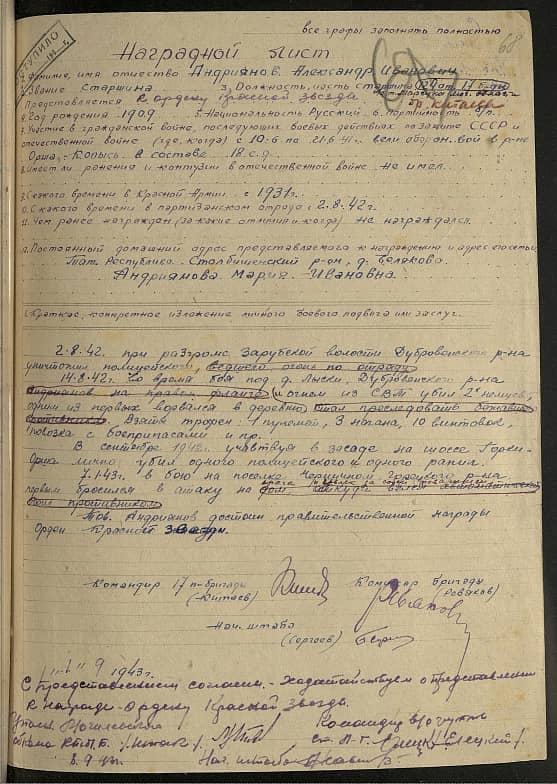 все графы заполнять полностью
68
Наградной лист
имя отчество Андриянов Александр Иванович
Звание Старшина 3. Должность, часть
Представляется к ордену Красной звезды
4. Год рождения 1909 5. Национальность Русский 6. Партийность
7. Участие в гражданской войне, последующих боевых действиях по защите СССР и
отечественной войне (где, когда) с 10.6 по 21.6.41г. вели оборон. бой в р-не
Орша, Копысь в составе 18 с.д.
8. Имеет ли ранения и контузии в отечественной войне не имел.
9. С какого времени в Красной Армии с 1931г.
10. С какого времени в партизанском отряде с 2.8.42г.
11. Чем ранее награжден (за какие отличия и когда) не награждался.
Постоянный домашний адрес представляемого к награждению и адрес его семьи
Тат. Республика Столбищенский р-он, д.
Андриянова Мария Ивановна.
Краткое, конкретное изложение личного боевого подвига или заслуг.
2.8.42. при разгроме Зарубской волости Дубровенского р-на
уничтожил полицейского, ведшего огонь по отряду
14.8.42г. во время боя под д. Лыски, Дубровенского р-на
Андриянов на правом фланге и огнем из СВТ убил 2х немцев,
одним из первых ворвался в деревню стал преследовать
противника. Взяты трофеи: 1 пулемет, 3 нагана, 10 винтовок,
повозка с боеприпасами и пр.
В сентябре 1942г. участвуя в засаде на шоссе Горки-
Орша лично убил одного полицейского и одного ранил.
7.1.43г. в бою на поселке Черничном Горецкого р-на
первым бросился в атаку на дом, откуда вел
огонь противник
Тов. Андриянов достоин правительственной награды
Орден Красной звезды.
Командир 17 п-бригады
(Китаев)
Комиссар бригады
(Реваков)
Нач. штаба
(Сергеев)
9 1943г.
С представлением согласен. - Ходатайствуем о представлении
к награде - ордену Красной Звезды.
Могилевского
обкома КП(б)Б
Командир
ст. л-т.
8.9.43г.
Нач. штаба